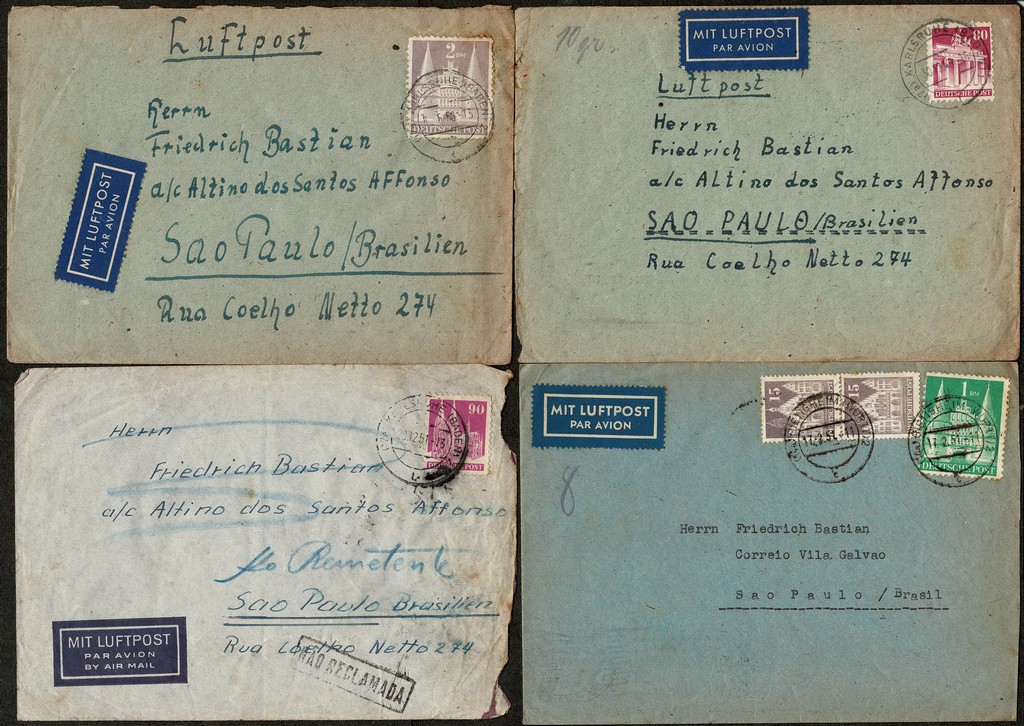 Luftpost
2 DM
DEUTSCHE POST
Herrn
Friedrich Bastian
a/c Altino dos Santos Affonso
Sao Paulo/Brasilien
Rua Coelho Netto 274
MIT LUFTPOST
PAR AVION
10 gr.
MIT LUFTPOST
PAR AVION
KARLSRUHE
80
DEUTSCHE POST
Luftpost
Herrn
Friedrich Bastian
a/c Altino dos Santos Affonso
SAO PAULO/Brasilien
Rua Coelho Netto 274
90
DEUTSCHE POST
Herrn
Friedrich Bastian
a/c Altino dos Santos Affonso
Ao Remetente
Sao Paulo Brasilien
Rua Coelho Netto 274
NÃO RECLAMADA
MIT LUFTPOST
PAR AVION
BY AIR MAIL
MIT LUFTPOST
PAR AVION
15
15
1 DM
DEUTSCHE POST
8
Herrn Friedrich Bastian
Correio Vila Galvao
Sao Paulo / Brasil